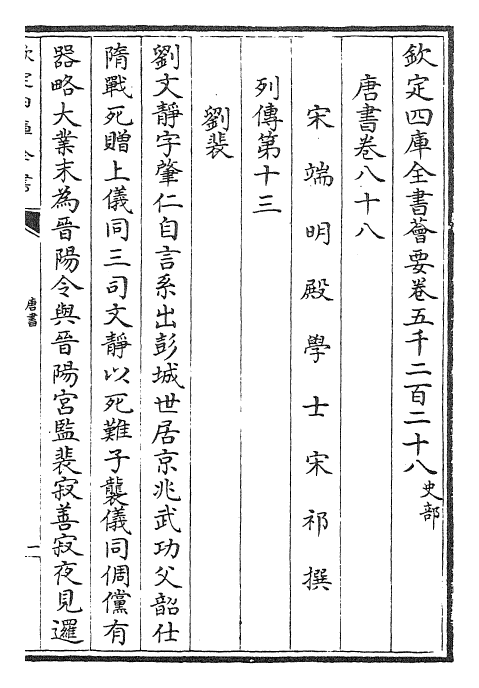 欽定四庫全書薈要卷五千二百二十八史部
唐書卷八十八
宋端明殿學士宋祁撰
列傳第十三
劉裴
劉文靜字肇仁自言系出彭城世居京兆武功父韶仕
隋戰死贈上儀同三司文靜以死難子襲儀同倜儻有
器略大業末為晉陽令與晉陽宮監裴寂善寂夜見邏
欽定四庫全書
唐書
一